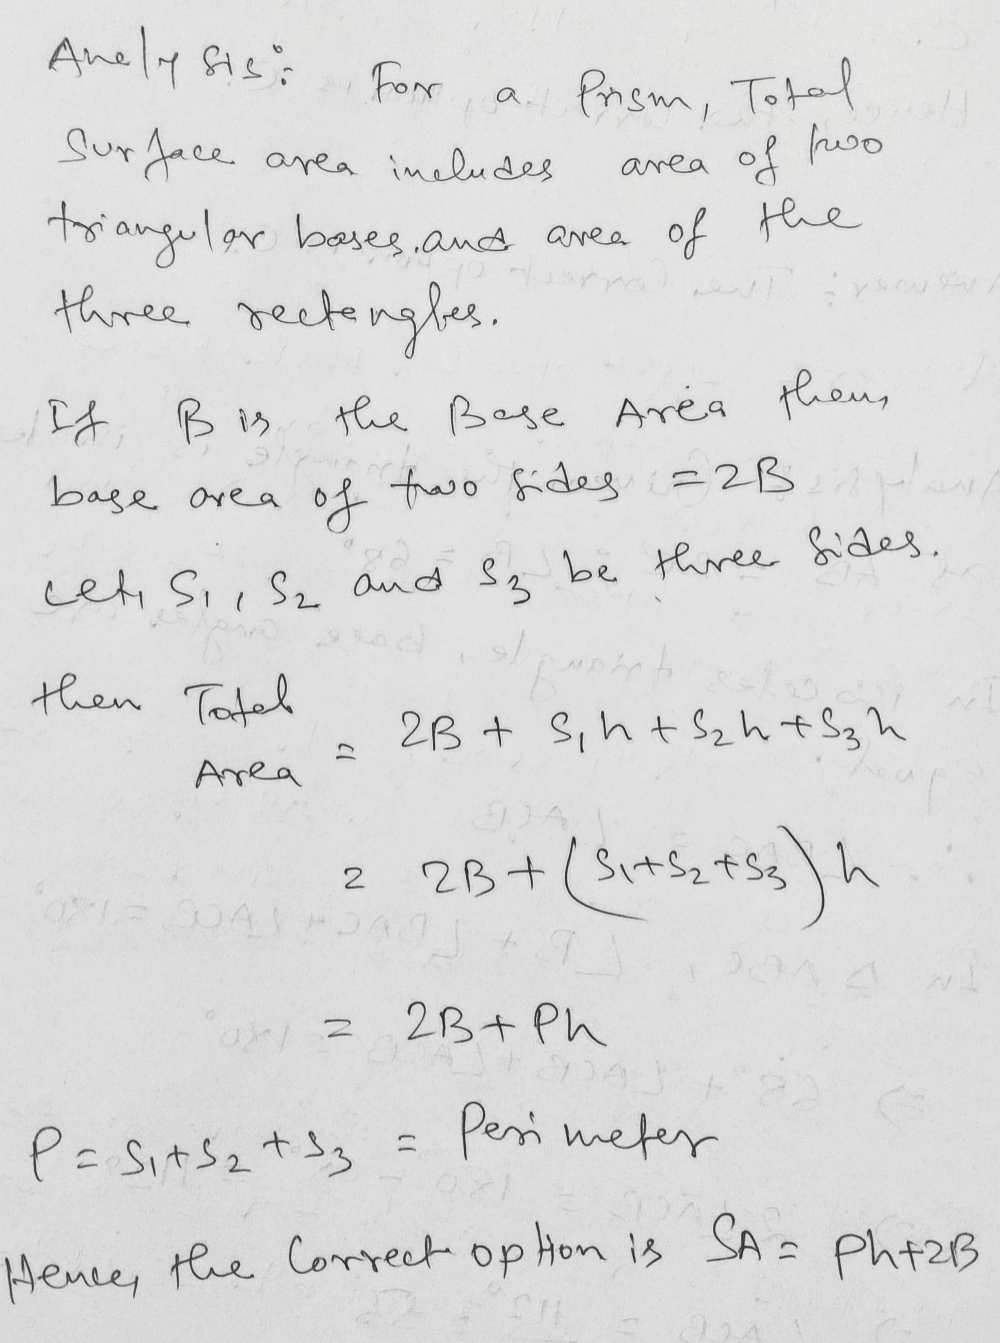 Analysis: For a Prism, Total
Surface area includes area of two
triangular bases, and area of the
three rectangles.
If B is the Base Area then,
base area of two sides = 2B
Let, S1, S2 and S3 be three sides.
then Total Area = 2B + S1h + S2h + S3h
= 2B + (S1+S2+S3)h
= 2B + Ph
P = S1+S2+S3 = Perimeter
Hence, the Correct option is SA = Ph+2B